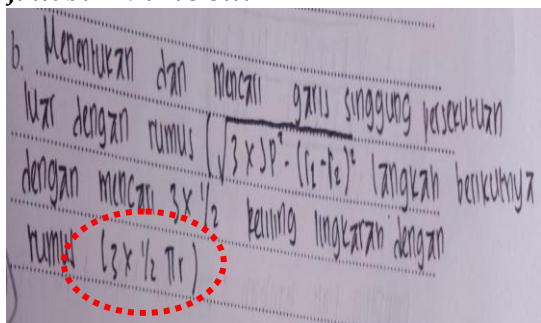 b. Menentukan dan mencari garis singgung persekutuan
luar dengan rumus (√3 x JP² - (r₁-r₂)² langkah berikutnya
dengan mencari 3 x ½ keliling lingkaran dengan
rumus (3 x ½ πr)